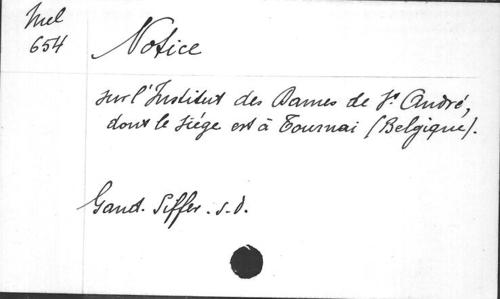 Mel
654
Notice
sur l'Institut des Dames de St. André,
dont le siége est à Tournai (Belgique).
Gand. Siffer. s.d.